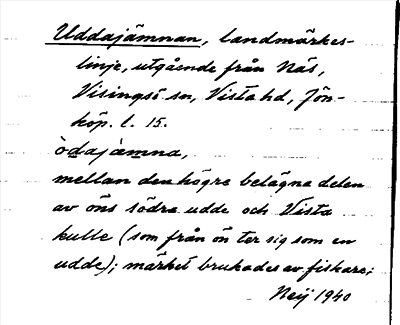 Uddajämnan, landmärkes-
linje, utgående från Näs,
Visingsö sn, Vista hd, Jön-
köp. l. 15.
ò̀dajàmna,
mellan den högre belägna delen
av öns södra udde och Vista
kulle (som från ön ter sig som en
udde); märket brukades av fiskare;
Neij 1940